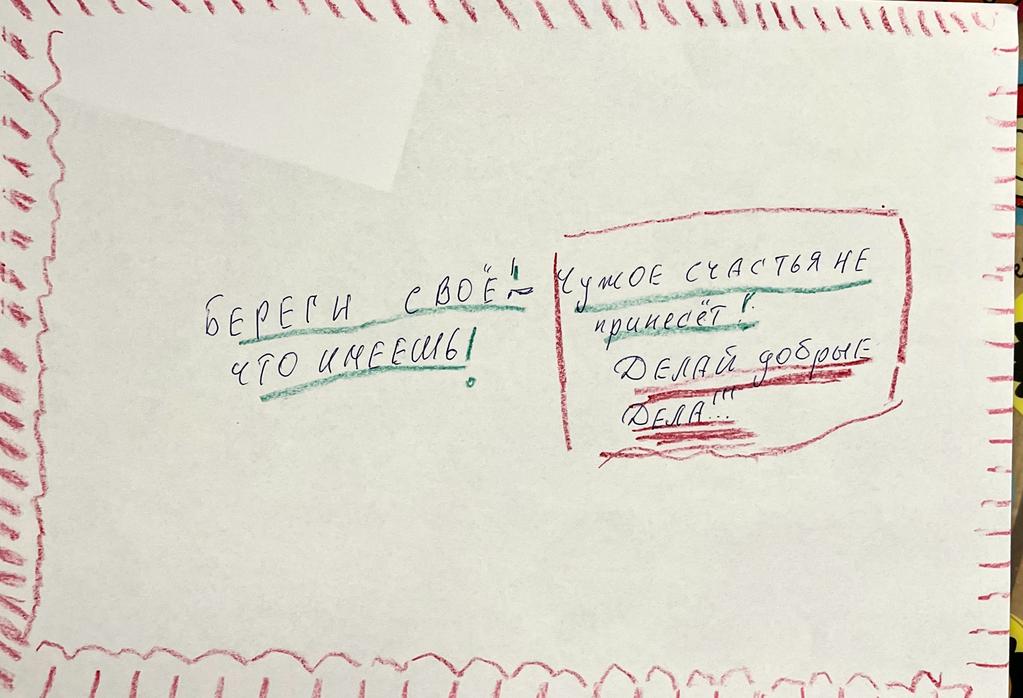 БЕРЕГИ СВОЁ! ~
ЧТО ИМЕЕШЬ!
ЧужОЕ СЧАСТЬЯ НЕ
принесёт!
ДЕЛАЙ добрыЕ
ДЕЛА!!!